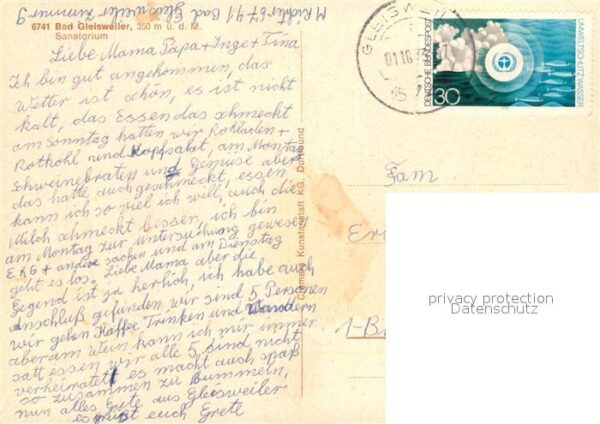 M Richter 6741 Bad Gleisweiler Zimmer 9
6741 Bad Gleisweiler, 350 m ü. d. M.
Sanatorium
Liebe Mama Papa + Inge + Tina
Ich bin gut angekommen, das
Wetter ist schön, es ist nicht
kalt, das Essen das schmeckt
am Sonntag hatten wir Rohladen +
Rotkohl und Kopfsalat, am Montag
Schweinebraten und Gemüse aber
das hatte auch geschmeckt, essen
kann ich so viel ich will, auch die
Milch schmeckt besser, ich bin
am Montag zur untersuchung gewesen
EKG + andere sachen und am Dienstag
geht es los, Liebe Mama aber die
Gegend ist ja herlich, ich habe auch
anschluß gefunden wir sind 5 Personen
wir gehen Kaffee Trinken und Wandern
aber am Wein kann ich mir immer
satt essen wir alle 5 sind nicht
verheiratet es macht auch spaß
so zusammen zu Bummeln,
nun alles Gute aus Gleisweiler
es grüßt euch Grete
Cramers Kunstanstalt KG, Dortmund
GLEISWEILER
DEUTSCHE BUNDESPOST
UMWELTSCHUTZ: WASSER
30
Fam
1-B
privacy protection
Datenschutz